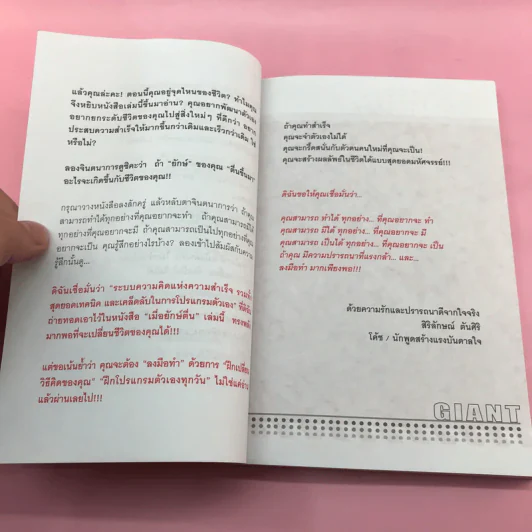 แล้วคุณล่ะคะ! ตอนนี้คุณอยู่จุดไหนของชีวิต? ทำไมคุณ
จึงหยิบหนังสือเล่มนี้ขึ้นมาอ่าน? คุณอยากพัฒนาตัวเอง
อยากยกระดับชีวิตของคุณไปสู่สิ่งใหม่ๆ ที่ดีกว่า อยาก
ประสบความสำเร็จให้มากขึ้นกว่าเดิมและเร็วกว่าเดิม ใช่
ลองจินตนาการดูซิคะว่า ถ้า "ยักษ์" ของคุณ "ตื่นขึ้นมา"
อะไรจะเกิดขึ้นกับชีวิตของคุณ!!
กรุณาวางหนังสือลงสักครู่ แล้วหลับตาจินตนาการว่า ถ้าคุณ
สามารถทำได้ทุกอย่างที่คุณอยากจะทำ ถ้าคุณสามารถมีได้
ทุกอย่างที่คุณอยากจะมี ถ้าคุณสามารถเป็นได้ในทุกอย่างที่คุณ
อยากจะเป็น คุณรู้สึกอย่างไรบ้าง? ลองเข้าไปสัมผัสกับความ
รู้สึกนั้นดู...
ดิฉันเชื่อมั่นว่า "ระบบความคิดแห่งความสำเร็จ รวมทั้ง
สุดยอดเทคนิค และเคล็ดลับในการโปรแกรมตัวเอง" ที่ดิฉัน
ถ่ายทอดเอาไว้ในหนังสือ "เมื่อยักษ์ตื่น" เล่มนี้ ทรงพลัง
มากพอที่จะเปลี่ยนชีวิตของคุณได้!!!
แต่ขอเน้นย้ำว่า คุณจะต้อง "ลงมือทำ" ด้วยการ "ฝึกเปลี่ยน
วิธีคิดของคุณ" "ฝึกโปรแกรมตัวเองทุกวัน" ไม่ใช่แค่อ่าน
แล้วผ่านเลยไป!!!
ถ้าคุณทำสำเร็จ
คุณจะจำตัวเองไม่ได้
คุณจะกรี๊ดสนั่นกับตัวตนคนใหม่ที่คุณจะเป็น!
คุณจะสร้างผลลัพธ์ในชีวิตได้แบบสุดยอดมหัศจรรย์!!!
ดิฉันขอให้คุณเชื่อมั่นว่า...
คุณสามารถ ทำได้ ทุกอย่าง... ที่คุณอยากจะ ทำ
คุณสามารถ มีได้ ทุกอย่าง... ที่คุณอยากจะ มี
คุณสามารถ เป็นได้ ทุกอย่าง... ที่คุณอยากจะ เป็น
ถ้าคุณ มีความปรารถนาที่แรงกล้า... และ...
ลงมือทำ มากเพียงพอ!!!
ด้วยความรักและปรารถนาดีจากใจจริง
สิริลักษณ์ ตันศิริ
โค้ช / นักพูดสร้างแรงบันดาลใจ
GIANT